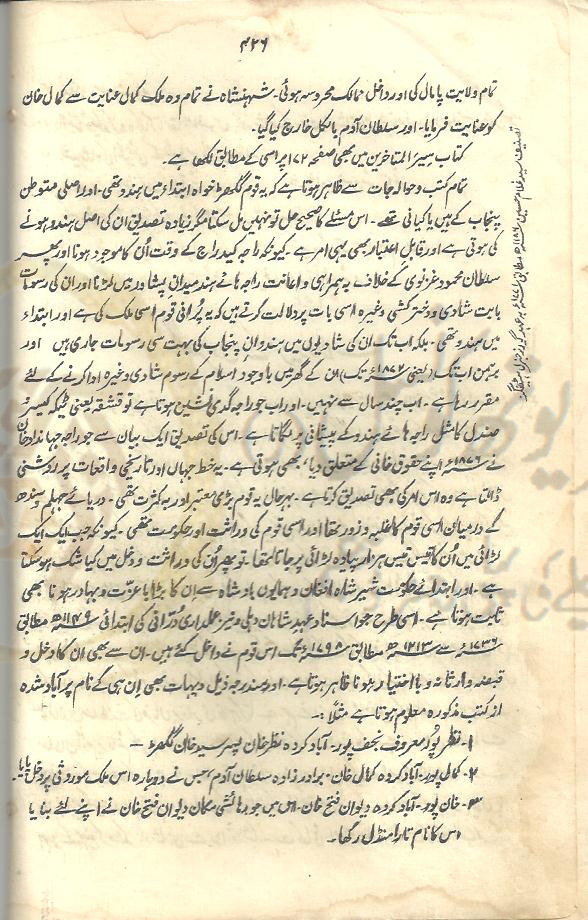 ۴۲۶
تمام ولایت پامال کی اور داخل ممالک محروسہ ہوئی۔ شہنشاہ نے تمام وہ ملک کمال عنایت سے کمال خان
کو عنایت فرمایا۔ اور سلطان آدم بالکل خارج کیا گیا۔
کتاب سیر المتاخرین میں بھی صفحہ ۱۷۲ پر اسی کے مطابق لکھا ہے۔
تمام کتب و حوالہ جات سے ظاہر ہوتا ہے کہ یہ قوم گکھڑ خواہ ابتداء میں ہندو تھی۔ اور اصلی متوطن
پنجاب کے ہیں یا کیانی تھے۔ اس مسئلے کا صحیح حل تو نہیں مل سکتا مگر زیادہ تصدیق ان کی اصل ہندو ہونے
کی ہوتی ہے اور قابل اعتبار بھی یہی امر ہے۔ کیونکہ راجہ کیدراج کے وقت اُن کا موجود ہونا اور پھر
سلطان محمود غزنوی کے خلاف بہ ہمراہی و اعانت راجہ ہائے ہند میدان پشاور میں لڑنا اور ان کی رسومات
بابت شادی و دختر کشی وغیرہ اسی بات پر دلالت کرتے ہیں کہ یہ پُرانی قوم اسی ملک کی ہے اور ابتداء
میں ہندو تھی۔ بلکہ اب تک ان کی شادیوں میں ہندوانِ پنجاب کی بہت سی رسومات جاری ہیں اور
برہمن اب تک (یعنی ۱۸۶۷ء تک) ان کے گھر میں باوجود اسلام کے رسوم شادی وغیرہ ادا کرنے کے لئے
مقرر رہا ہے۔ اب چند سال سے نہیں۔ اور اب جو راجہ گدی نشین ہوتا ہے تو قشقہ یعنی ٹیکہ کیسر و
صندل کا مثل راجہ ہائے ہندو کے پیشانی پر لگاتا ہے۔ اس کی تصدیق ایک بیان سے جو راجہ جہانداد خان
نے ۱۸۷۶ء اپنے حقوق خانی کے متعلق دیا، بھی ہوتی ہے۔ یہ خط جہاں اور تاریخی واقعات پر روشنی
ڈالتا ہے وہ اس امر کی بھی تصدیق کرتا ہے۔ بہرحال یہ قوم بڑی معتبر اور بہ کثرت تھی۔ دریائے جہلم و سندھ
کے درمیان اسی قوم کا غلبہ و زور تھا اور اسی قوم کی وراثت اور حکومت تھی۔ کیونکہ جب ایک ایک
لڑائی میں اُن کا تیس تیس ہزار پیادہ لڑائی پر جاتا تھا۔ تو پھر اُن کی وراثت و دخل میں کیا شک ہو سکتا
ہے۔ اور ابتدائے حکومت شیر شاہ افغان و ہمایوں بادشاہ سے ان کا بڑا با عزت و بہادر ہونا بھی
ثابت ہوتا ہے۔ اسی طرح جو اسناد عہد شاہان دہلی و نیز عملداری دُرّانی کی ابتدائی ۱۱۴۹ھ مطابق
۱۷۳۶ء سے ۱۲۱۳ھ مطابق ۱۷۹۸ء تک اس قوم نے داخل کئے ہیں۔ ان سے بھی ان کا دخل و
قبضہ وارثانہ و با اختیار ہونا ظاہر ہوتا ہے۔ اور مندرجہ ذیل دیہات بھی اِن ہی کے نام پر آباد شدہ
از کتب مذکورہ معلوم ہوتا ہے مثلاً :۔
۱۔ نظر پور معروف نجف پور۔ آباد کردہ نظر خان پسر سید خان گکھڑ —
۲۔ کمال پور۔ آباد کردہ کمال خان۔ برادر زادہ سلطان آدم، جس نے دوبارہ اس ملک موروثی پر دخل پایا۔
۳۔ خان پور۔ آباد کردہ دیوان فتح خان۔ اس میں جو رہائشی مکان دیوان فتح خان نے اپنے لئے بنایا
اس کا نام تارا منڈل رکھا۔
تصنیف سید غلام حسین